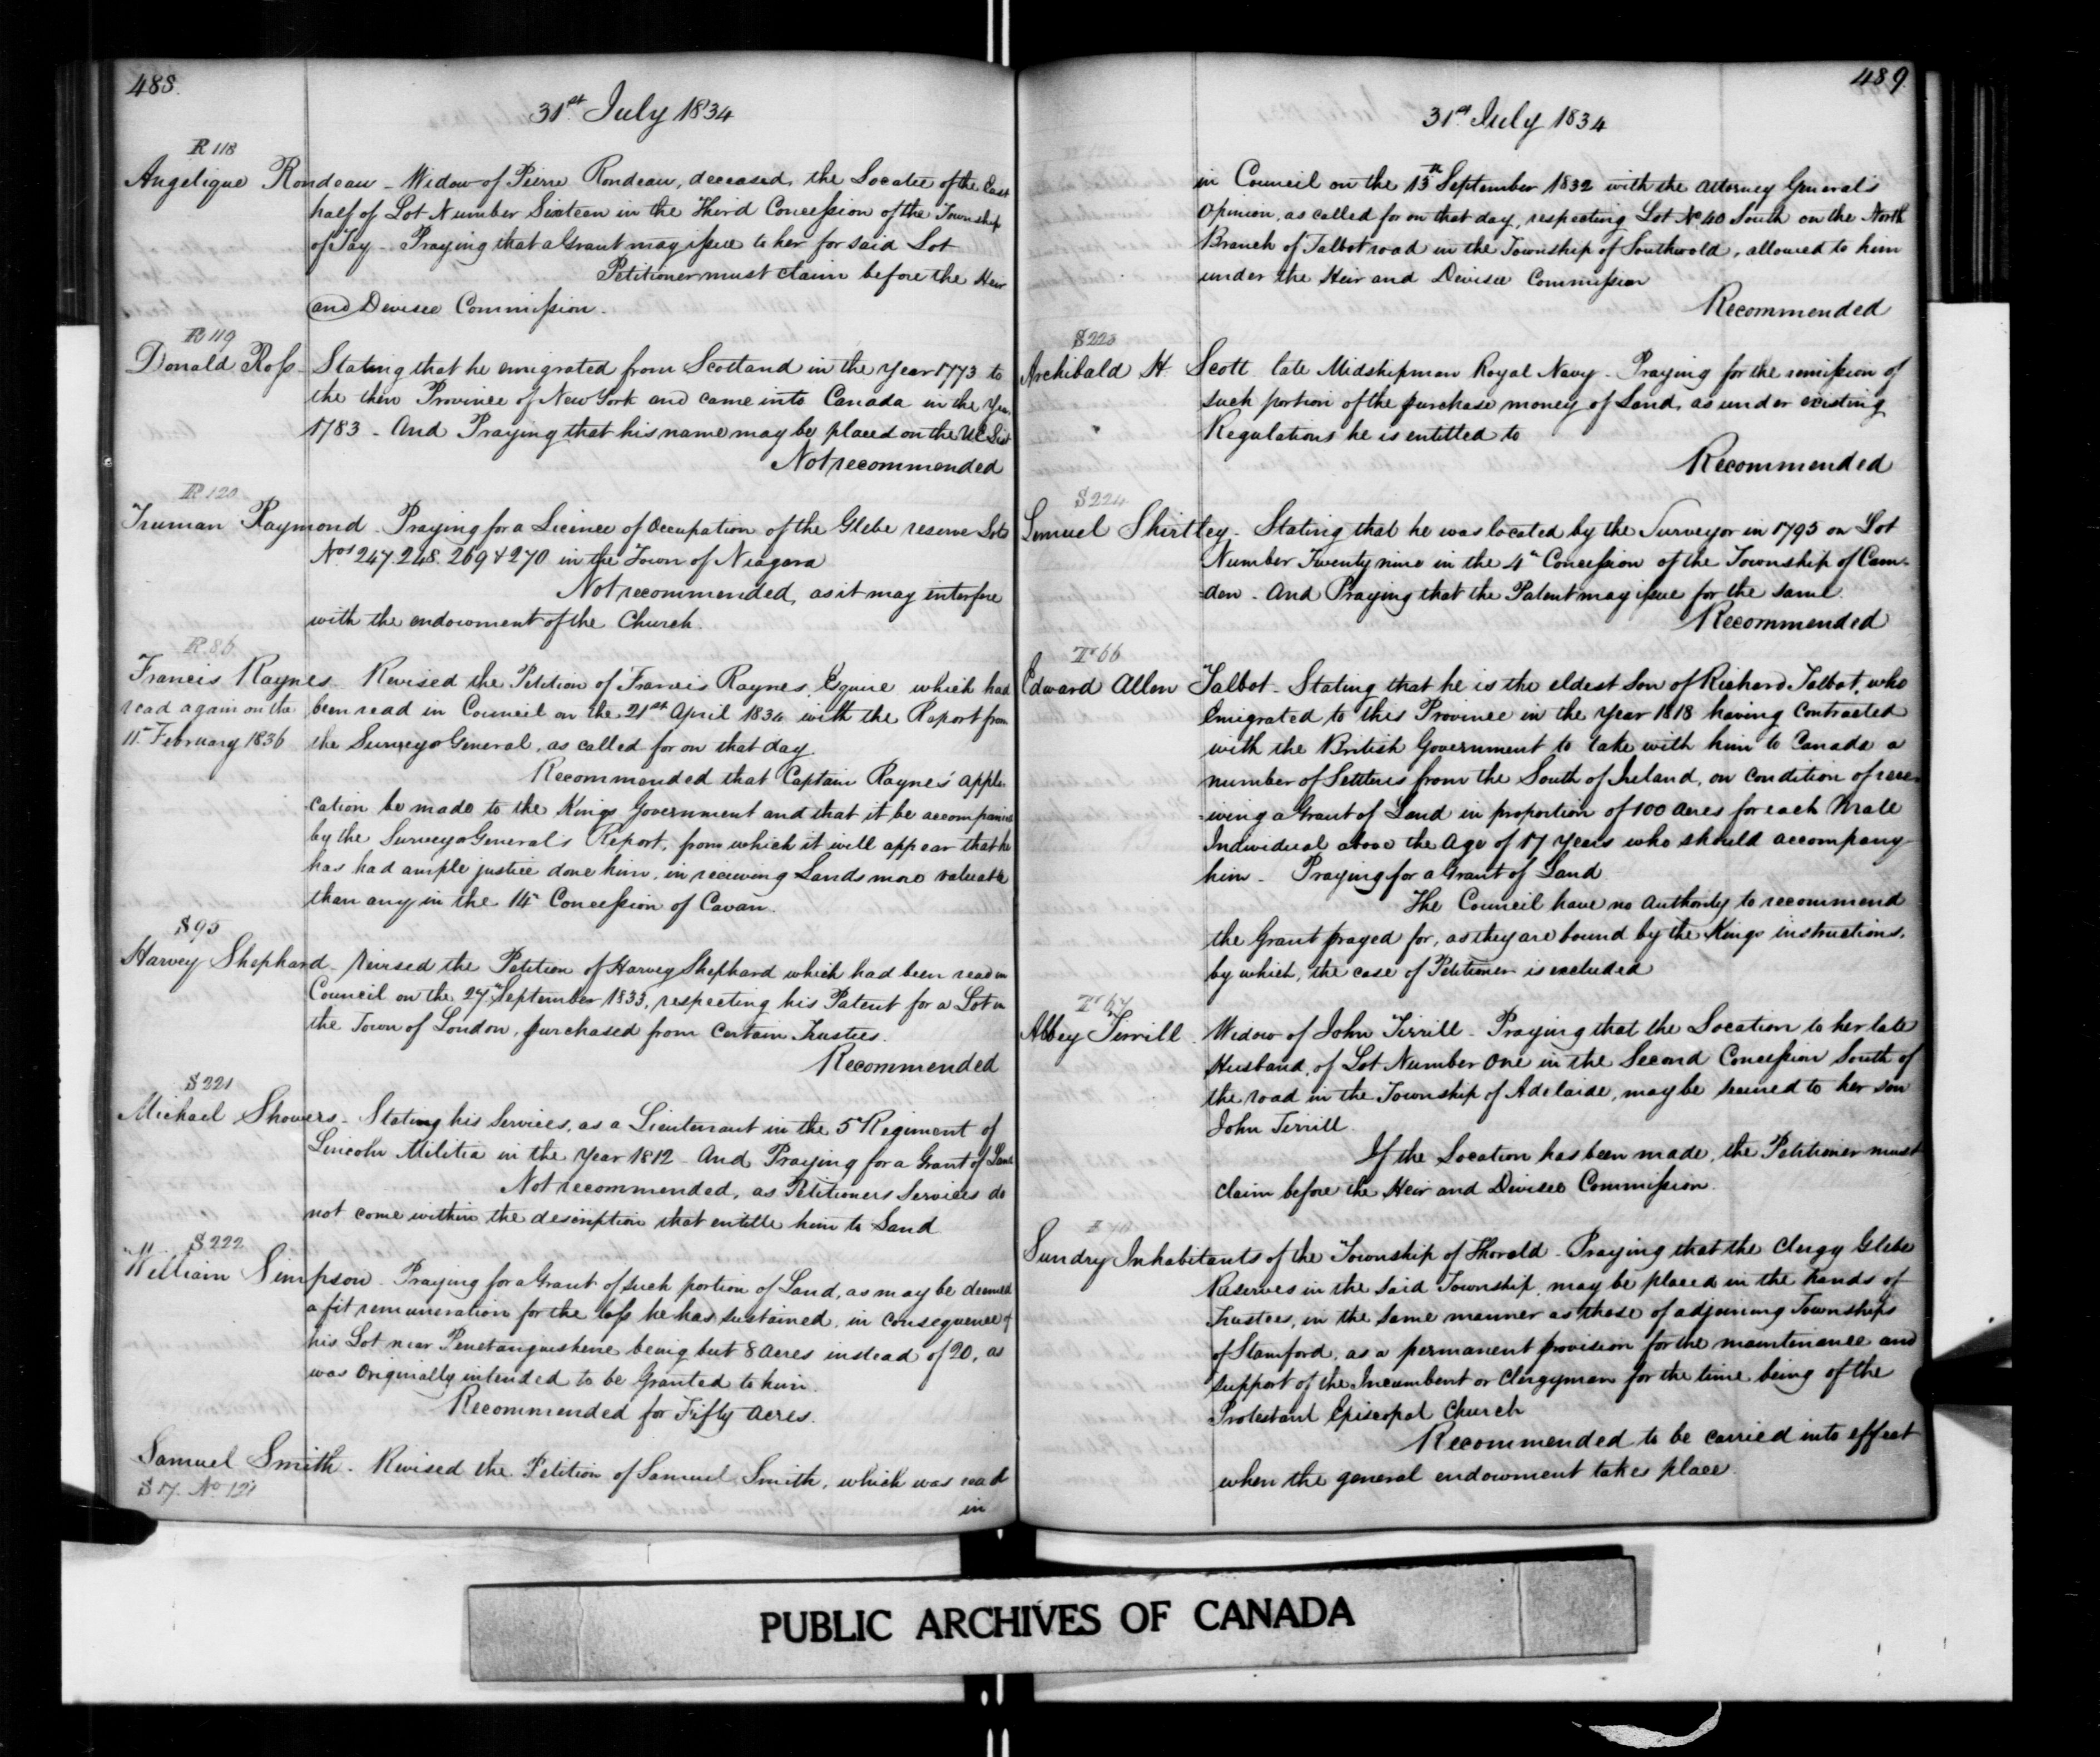 488.
31st July 1834
R 118
Angelique Rondeau - Widow of Pierre Rondeau, deceased, the Locatee of the East
half of Lot Number Sixteen in the Third Concession of the Township
of Tay - Praying that a Grant may issue to her for said Lot
Petitioner must claim before the Heir
and Devisee Commission.
R 119
Donald Ross - Stating that he emigrated from Scotland in the Year 1773 to
the then Province of New York and came into Canada in the Year
1783 - And Praying that his name may be placed on the U.E. List
Not recommended
R 120
Truman Raymond - Praying for a Licince of Occupation of the Glebe reserve Lots
Nos 247. 248. 269 & 270 in the Town of Niagara
Not recommended, as it may interfere
with the endowment of the Church.
R 86
Francis Raynes - Revised the Petition of Francis Raynes, Esquire which had
read again on the
been read in Council on the 21st April 1834 with the Report from
11th February 1836
the Surveyor General, as called for on that day.
Recommended that Captain Raynes' appli-
cation be made to the Kings Government and that it be accompanied
by the Surveyor General's Report, from which it will appear that he
has had ample justice done him, in receiving Lands more valuable
than any in the 14th Concession of Cavan.
S 95
Harvey Shephard - Revised the Petition of Harvey Shephard which had been read in
Council on the 27th September 1833, respecting his Patent for a Lot in
the Town of London, purchased from Certain Trustees.
Recommended
S 221
Michael Showers - Stating his Services, as a Lieutenant in the 5th Regiment of
Lincoln Militia in the Year 1812 - And Praying for a Grant of Land
Not recommended, as Petitioners Services do
not come within the description that entitle him to Land
S 222
William Simpson - Praying for a Grant of such portion of Land, as may be deemed
a fit remuneration for the loss he has sustained, in consequence of
his Lot near Penetanguishene being but 8 Acres instead of 20, as
was Originally intended to be Granted to him.
Recommended for Fifty Acres.
Samuel Smith - Revised the Petition of Samuel Smith, which was read
S 17. No 121
in
489
31st July 1834
in Council on the 13th September 1832 with the Attorney General's
Opinion, as called for on that day, respecting Lot No 40 South on the North
Branch of Talbot road in the Township of Southwold, allowed to him
under the Heir and Devisee Commission
Recommended
S 223
Archibald H. Scott late Midshipman Royal Navy - Praying for the remission of
such portion of the purchase money of Land, as under existing
Regulations he is entitled to
Recommended
S 224
Lemuel Shirtley - Stating that he was located by the Surveyor in 1795 on Lot
Number Twenty nine in the 4th Concession of the Township of Cam-
=den - And Praying that the Patent may issue for the same
Recommended
T 66
Edward Allen Talbot - Stating that he is the eldest Son of Richard Talbot, who
Emigrated to this Province in the Year 1818 having Contracted
with the British Government to take with him to Canada a
number of Settlers from the South of Ireland, on condition of rece-
=iving a Grant of Land in proportion of 100 Acres for each Male
Individual above the Age of 17 Years who should accompany
him - Praying for a Grant of Land
The Council have no Authority to recommend
the Grant prayed for, as they are bound by the Kings instructions,
by which, the case of Petitioner is excluded
T 67
Abbey Tirrill - Widow of John Tirrill - Praying that the Location to her late
Husband, of Lot Number One in the Second Concession South of
the road in the Township of Adelaide, may be secured to her son
John Tirrill
If the Location has been made, the Petitioner must
claim before the Heir and Devisee Commission.
Sundry Inhabitants of the Township of Thorold - Praying that the Clergy Glebe
Reserves in the said Township, may be placed in the hands of
Trustees, in the same manner as those of adjoining Townships
of Stamford, as a permanent provision for the maintinance and
support of the Incumbent or Clergyman for the time being of the
Protestant Episcopal Church
Recommended to be carried into effect
when the general endowment takes place.
PUBLIC ARCHIVES OF CANADA